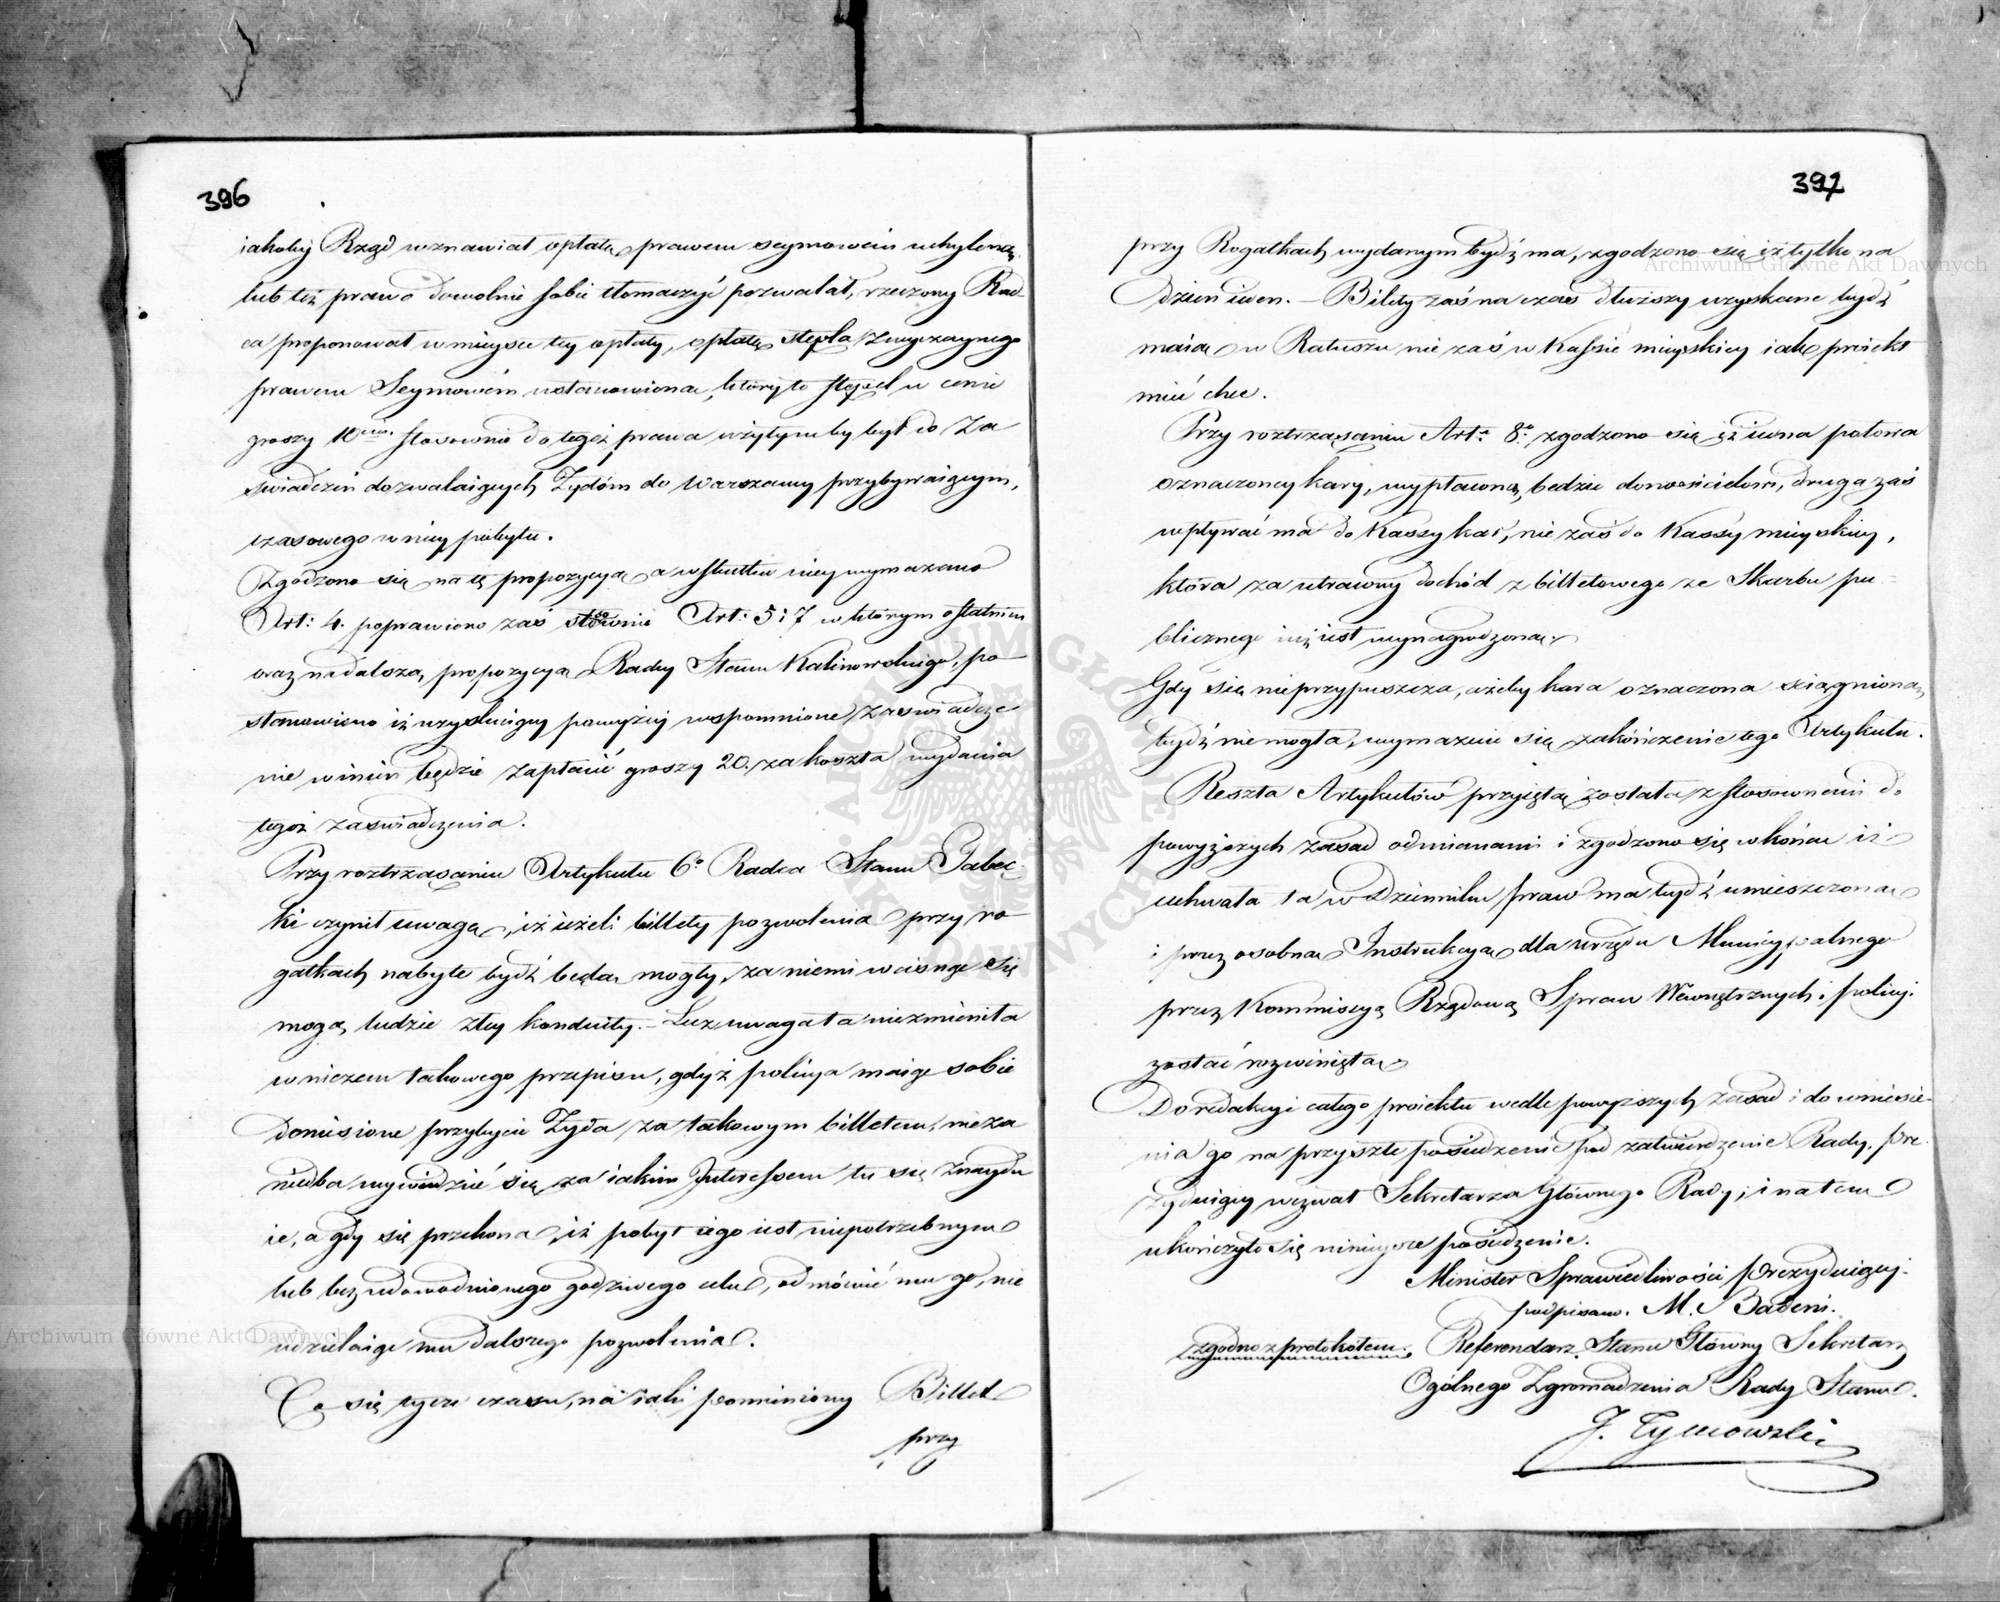 396
iakoby Rząd wznawiał opłatę prawem seymowém uchyloną,
lub też prawo dowolnie sobie tłomaczyć pozwalał, rzeczony Rad-
ca proponował w mieysce tey opłaty, opłatę stępla zwyczaynego
prawem Seymowém ustanowioną, który to stępel w cenie
groszy 10ciu stosownie do tegoż prawa użytymby był do Za
świadczeń dozwalaiących Żydóm do Warszawy przybywaiącym,
czasowego w niey pobytu.
Zgodzono się na tę propozycyą a w skutku niey wymazano
Art: 4. poprawiono zaś stosownie Art: 5 i 7 w którym ostatnim
oraz na dalszą propozycyą Radcy Stanu Kalinowskiego, po
stanowiono iż uzyskuiący powyżey wspomnione zaświadcze
nie winien będzie zapłacić groszy 20. za koszta wydania
tegoż zaświadczenia.
Przy roztrząsaniu Artykułu 6o Radca Stanu Gabec-
ki czynił uwagę, iż ieżeli billety pozwolenia przy ro
gatkach nabyte bydź będą mogły, za niemi wcisnąć się
mogą ludzie złey konduity. – Lecz uwaga ta niezmieniła
w niczem takowego przepisu, gdyż policya maiąc sobie
doniesione przybycie Żyda za takowym billetem, nieza
niedba wywiedzieć się za iakim Interessem tu się znaydu
ie, a gdy się przekona, iż pobyt iego iest niepotrzebnym
lub bez udowodnionego godziwego celu, odmówić mu go, nie
udzielaiąc mu dalszego pozwolenia.
Co się tycze czasu, na iaki pomieniony Billet
przy
397
przy Rogatkach wydanym bydź ma, zgodzono się iż tylko na
dzień ieden. – Bilety zaś na czas dłuższy uzyskane bydź
maią w Ratuszu nie zaś w Kassie mieyskiey iak proiekt
mieć chce.
Przy roztrząsaniu Art. 8o zgodzono się iż iedna połowa
oznaczoney kary, wypłaconą będzie donosicielowi, druga zaś
wpływać ma do Kassy kar, nie zaś do Kassy mieyskiey,
która za utracony dochód z billetowego ze Skarbu pu-
blicznego iuż iest wynagrodzoną.
Gdy się nieprzypuszcza, ażeby kara oznaczona ściągnioną
bydź nie mogła, wymazuie się zakończenie tego Artykułu.
Reszta Artykułów przyiętą została z stosownemi do
powyższych zasad odmianami i zgodzono się w końcu iż
uchwała ta w Dzienniku praw ma bydź umieszczona
i przez osobną Instrukcyą dla urzędu Municypalnego
przez Kommissyą Rządową Spraw Wewnętrznych i policyi
zostać rozwiniętą
Do redakcyi całego proiektu wedle powyższych zasad i do wniesie-
nia go na przyszłe posiedzenie pod zatwierdzenie Rady, pre-
zyduiący wezwał Sekretarza Głównego Rady, i na tem
ukończyło się ninieysze posiedzenie.
Minister Sprawiedliwości prezyduiący.
podpisano. M. Badeni.
zgodno z protokołem. Referendarz Stanu Główny Sekretarz
Ogólnego Zgromadzenia Rady Stanu.
J. Tymowski
Archiwum Główne Akt Dawnych
Archiwum Główne Akt Dawnych
ARCHIWUM GŁÓWNE AKT DAWNYCH